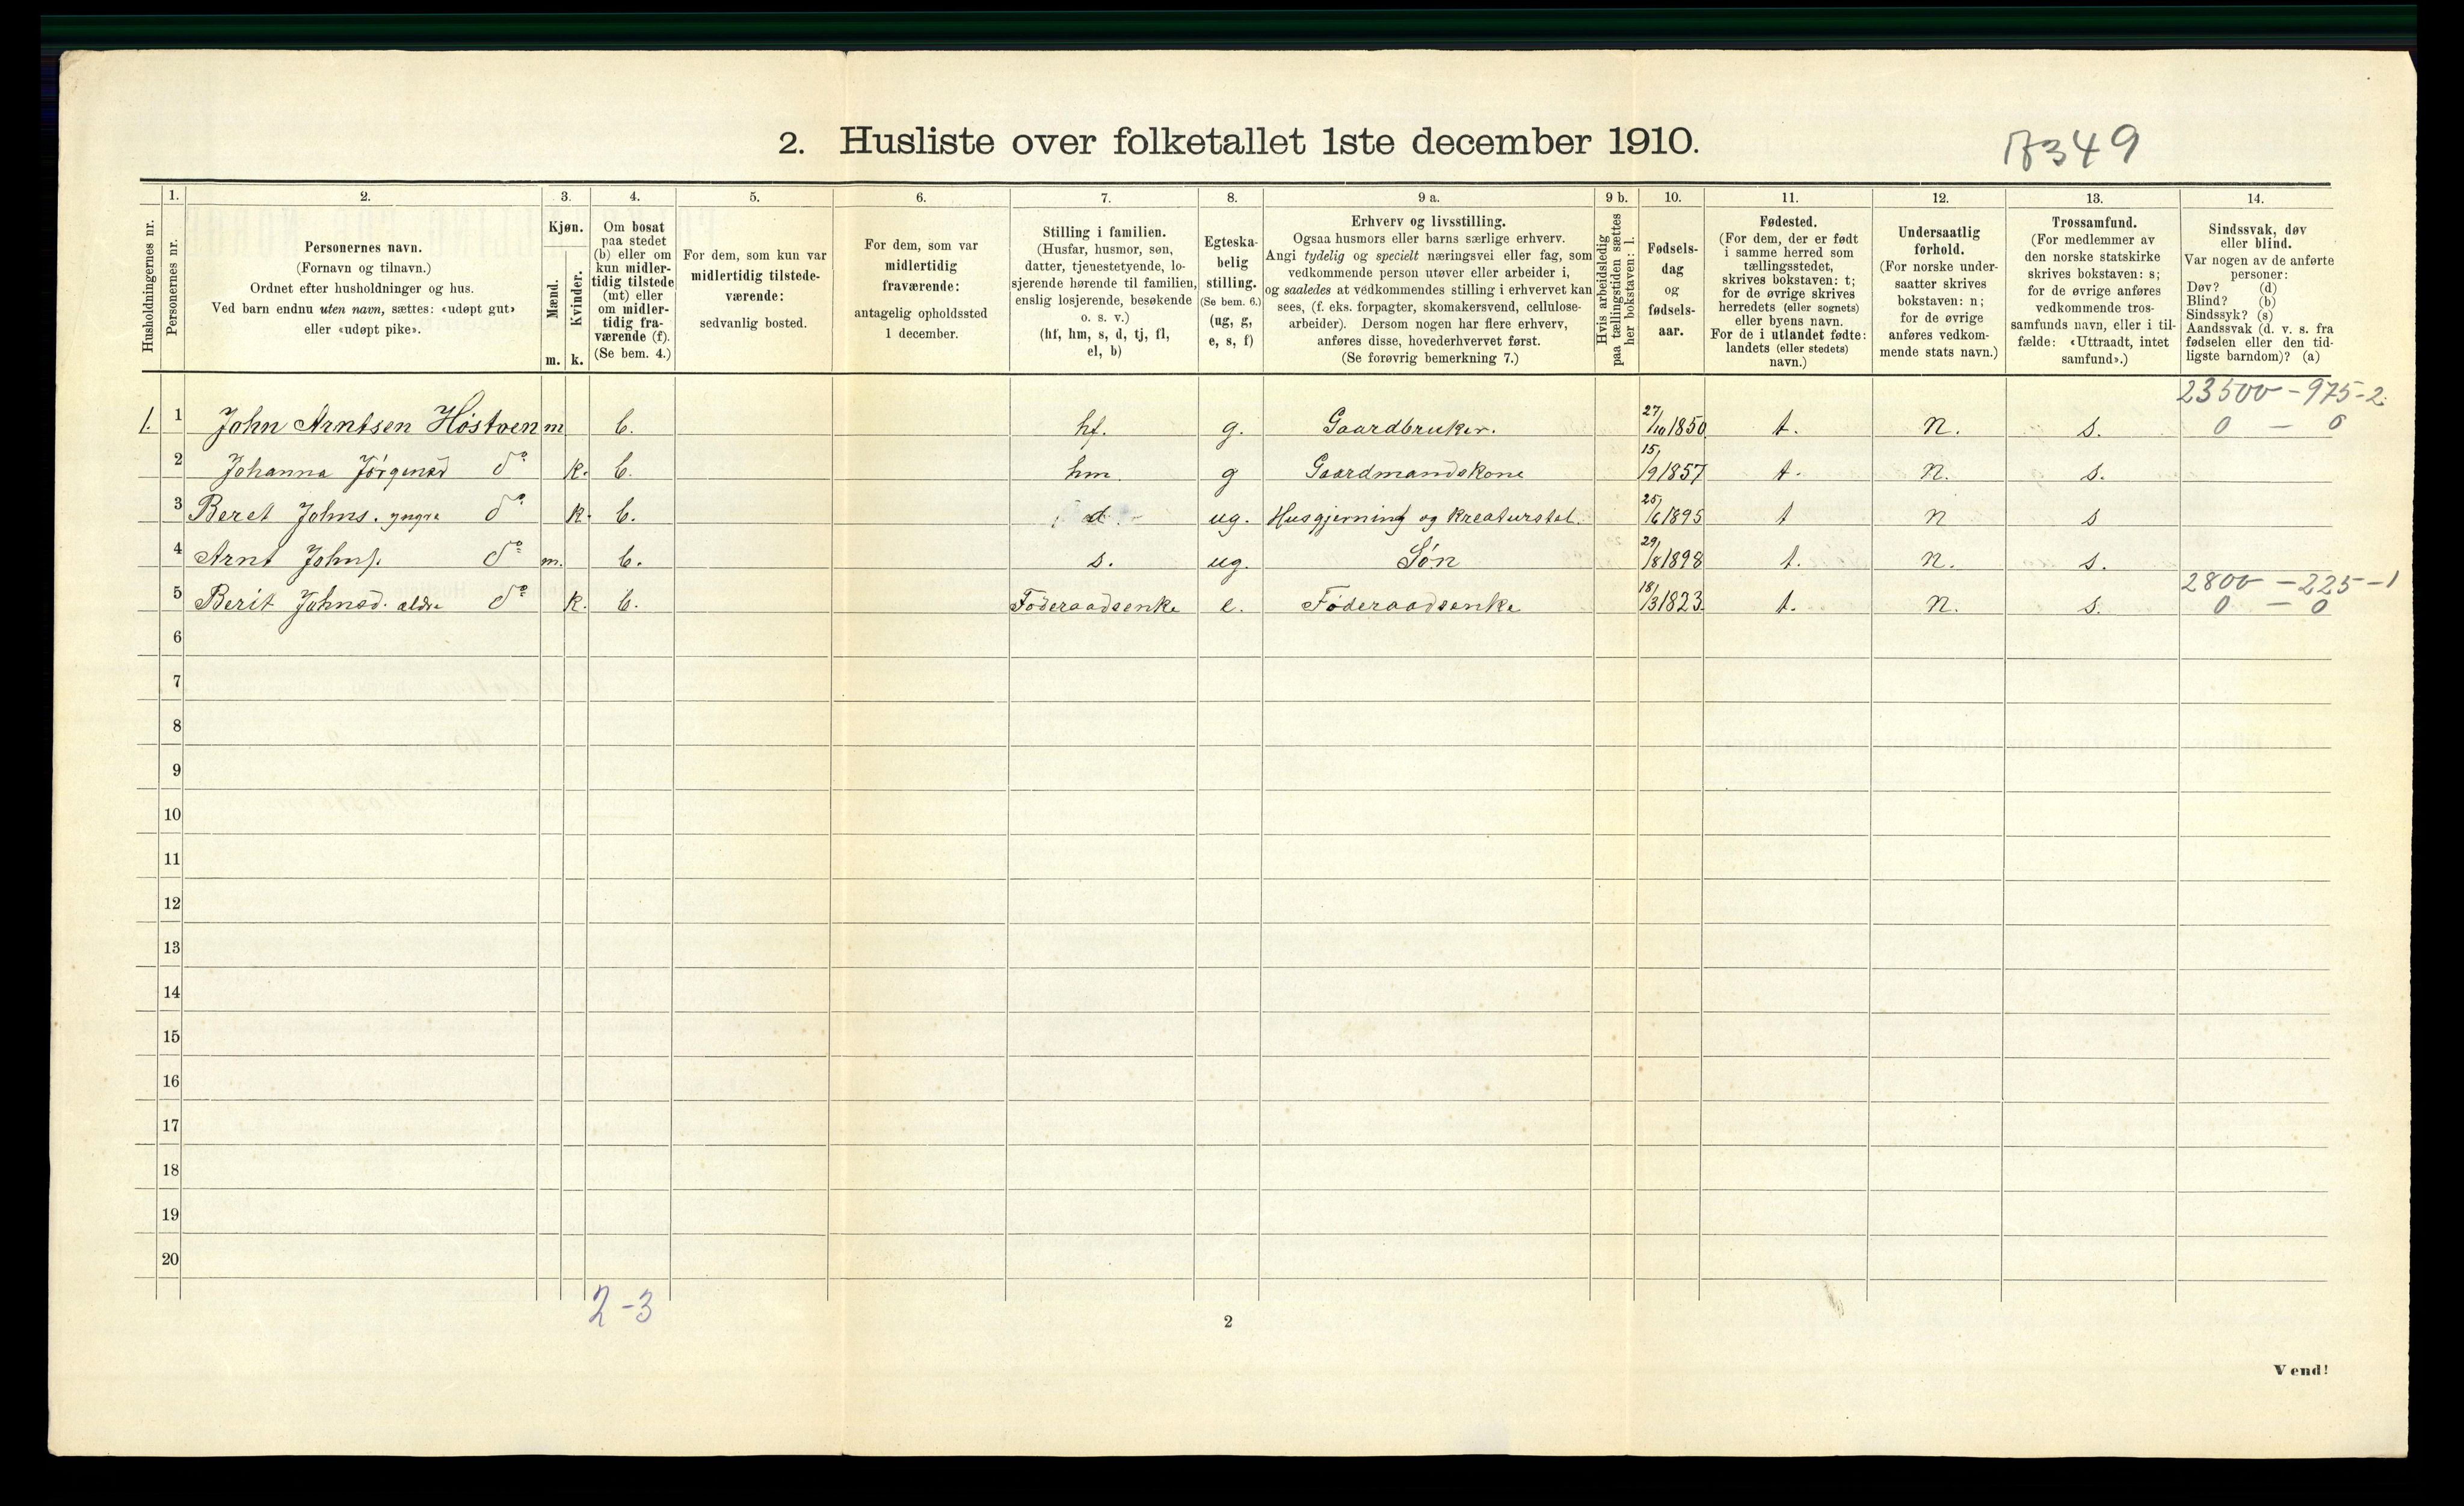 2. Husliste over folketallet 1ste december 1910.
349
Husholdningernes nr.
1.
Personernes nr.
2.
Personernes navn.
(Fornavn og tilnavn.)
Ordnet efter husholdninger og hus.
Ved barn endnu uten navn, sættes: «udøpt gut»
eller «udøpt pike».
3.
Kjøn.
Mænd.
Kvinder.
m. k.
4.
Om bosat
paa stedet
(b) eller om
kun midler-
tidig tilstede
(mt) eller
om midler-
tidig fra-
værende (f).
(Se bem. 4.)
5.
For dem, som kun var
midlertidig tilstede-
værende:
sedvanlig bosted.
6.
For dem, som var
midlertidig
fraværende:
antagelig opholdssted
1 december.
7.
Stilling i familien.
(Husfar, husmor, søn,
datter, tjenestetyende, lo-
sjerende hørende til familien,
enslig losjerende, besøkende
o. s. v.)
(hf, hm, s, d, tj, fl,
el, b)
8.
Egteska-
belig
stilling.
(Se bem. 6.)
(ug, g,
e, s, f)
9 a.
Erhverv og livsstilling.
Ogsaa husmors eller barns særlige erhverv.
Angi tydelig og specielt næringsvei eller fag, som
vedkommende person utøver eller arbeider i,
og saaledes at vedkommendes stilling i erhvervet kan
sees, (f. eks. forpagter, skomakersvend, cellulose-
arbeider). Dersom nogen har flere erhverv,
anføres disse, hovederhvervet først.
(Se forøvrig bemerkning 7.)
9 b.
Hvis arbeidsledig
paa tællingstiden sættes
her bokstaven: l.
10.
Fødsels-
dag
og
fødsels-
aar.
11.
Fødested.
(For dem, der er født
i samme herred som
tællingsstedet,
skrives bokstaven: t;
for de øvrige skrives
herredets (eller sognets)
eller byens navn.
For de i utlandet fødte:
landets (eller stedets)
navn.)
12.
Undersaatlig
forhold.
(For norske under-
saatter skrives
bokstaven: n;
for de øvrige
anføres vedkom-
mende stats navn.)
13.
Trossamfund.
(For medlemmer av
den norske statskirke
skrives bokstaven: s;
for de øvrige anføres
vedkommende tros-
samfunds navn, eller i til-
fælde: «Uttraadt, intet
samfund».)
14.
Sindssvak, døv
eller blind.
Var nogen av de anførte
personer:
Døv? (d)
Blind? (b)
Sindssyk? (s)
Aandssvak (d. v. s. fra
fødselen eller den tid-
ligste barndom)? (a)
23500 - 975 - 2
1. 1 John Arntsen Höstven m b. hf. g. Gaardbruker. 27/10 1850 t. n. s. 0 - 0
2 Johanna Jörgensd do k. b. hm. g Gaardmandskone 15/9 1857 t. n. s.
3 Beret Johns. yngre do k. b. d ug. Husgjerning og kreaturstel. 25/6 1895 t n s
4 Arnt Johns. do m. b. s. ug. Søn 29/8 1898 t. n. s.
2800 - 225 - 1
5 Berit Johnsd. ældre do k. b. Föderaadsenke e. Föderaadsenke 18/3 1823 t. n. s. 0 - 0
6
7
8
9
10
11
12
13
14
15
16
17
18
19
20
2-3
2
Vend!